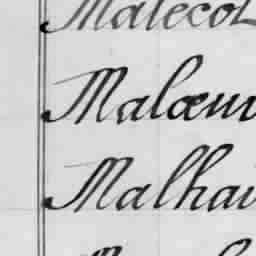 Malecot
Malœuv
Malhai